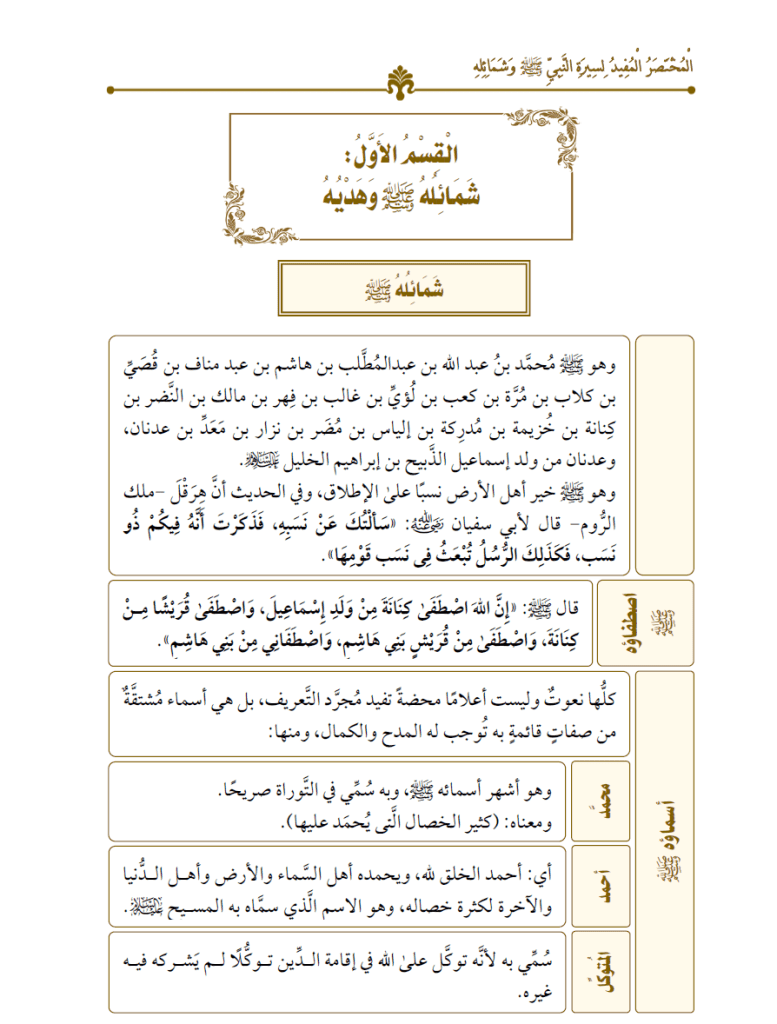 الْمُخْتَصَرُ الْمُفِيدُ لِسِيرَةِ النَّبِيِّ ﷺ وَشَمَائِلِهِ
الْقِسْمُ الأَوَّلُ:
شَمَائِلُهُ ﷺ وَهَدْيُهُ
شَمَائِلُهُ ﷺ
وهو ﷺ مُحمَّد بنُ عبد الله بن عبدالمُطَّلب بن هاشم بن عبد مناف بن قُصَيِّ
بن كلاب بن مُرَّة بن كعب بن لُؤيِّ بن غالب بن فِهر بن مالك بن النَّضر بن
كِنانة بن خُزيمة بن مُدرِكة بن إلياس بن مُضَر بن نزار بن مَعَدِّ بن عدنان،
وعدنان من ولد إسماعيل الذَّبيح بن إبراهيم الخليل عَلَيْهِ السَّلَامُ.
وهو ﷺ خير أهل الأرض نسبًا علىٰ الإطلاق، وفي الحديث أنَّ هِرَقْلَ –ملك
الرُّوم– قال لأبي سفيان رَضِيَ اللَّهُ عَنْهُ: «سَأَلْتُكَ عَنْ نَسَبِهِ، فَذَكَرْتَ أَنَّهُ فِيكُمْ ذُو
نَسَب، فَكَذَلِكَ الرُّسُلُ تُبْعَثُ فِي نَسَب قَوْمِهَا».
اصطفاؤه ﷺ
قال ﷺ: «إِنَّ اللهَ اصْطَفَىٰ كِنَانَةَ مِنْ وَلَدِ إِسْمَاعِيلَ، وَاصْطَفَىٰ قُرَيْشًا مِـنْ
كِنَانَةَ، وَاصْطَفَىٰ مِنْ قُرَيْشٍ بَنِي هَاشِمٍ، وَاصْطَفَانِي مِنْ بَنِي هَاشِمٍ».
أسماؤه ﷺ
كلُّها نعوتٌ وليست أعلامًا محضةً تفيد مُجرَّد التَّعريف، بل هي أسماء مُشتقَّةٌ
من صفاتٍ قائمةٍ به تُوجب له المدح والكمال، ومنها:
محمَّد
وهو أشهر أسمائه ﷺ، وبه سُمِّي في التَّوراة صريحًا.
ومعناه: (كثير الخصال الَّتي يُحمَد عليها).
أحمد
أي: أحمد الخلق لله، ويحمده أهل السَّماء والأرض وأهـل الـدُّنيا
والآخرة لكثرة خصاله، وهو الاسم الَّذي سمَّاه به المسـيح عَلَيْهِ السَّلَامُ.
المُتوكِّل
سُمِّي به لأنَّه توكَّل علىٰ الله في إقامة الـدِّين تـوكُّلًا لـم يَشـركه فيـه
غيره.